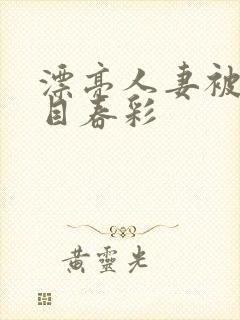 漂亮人妻被
目春彩
黄靈光